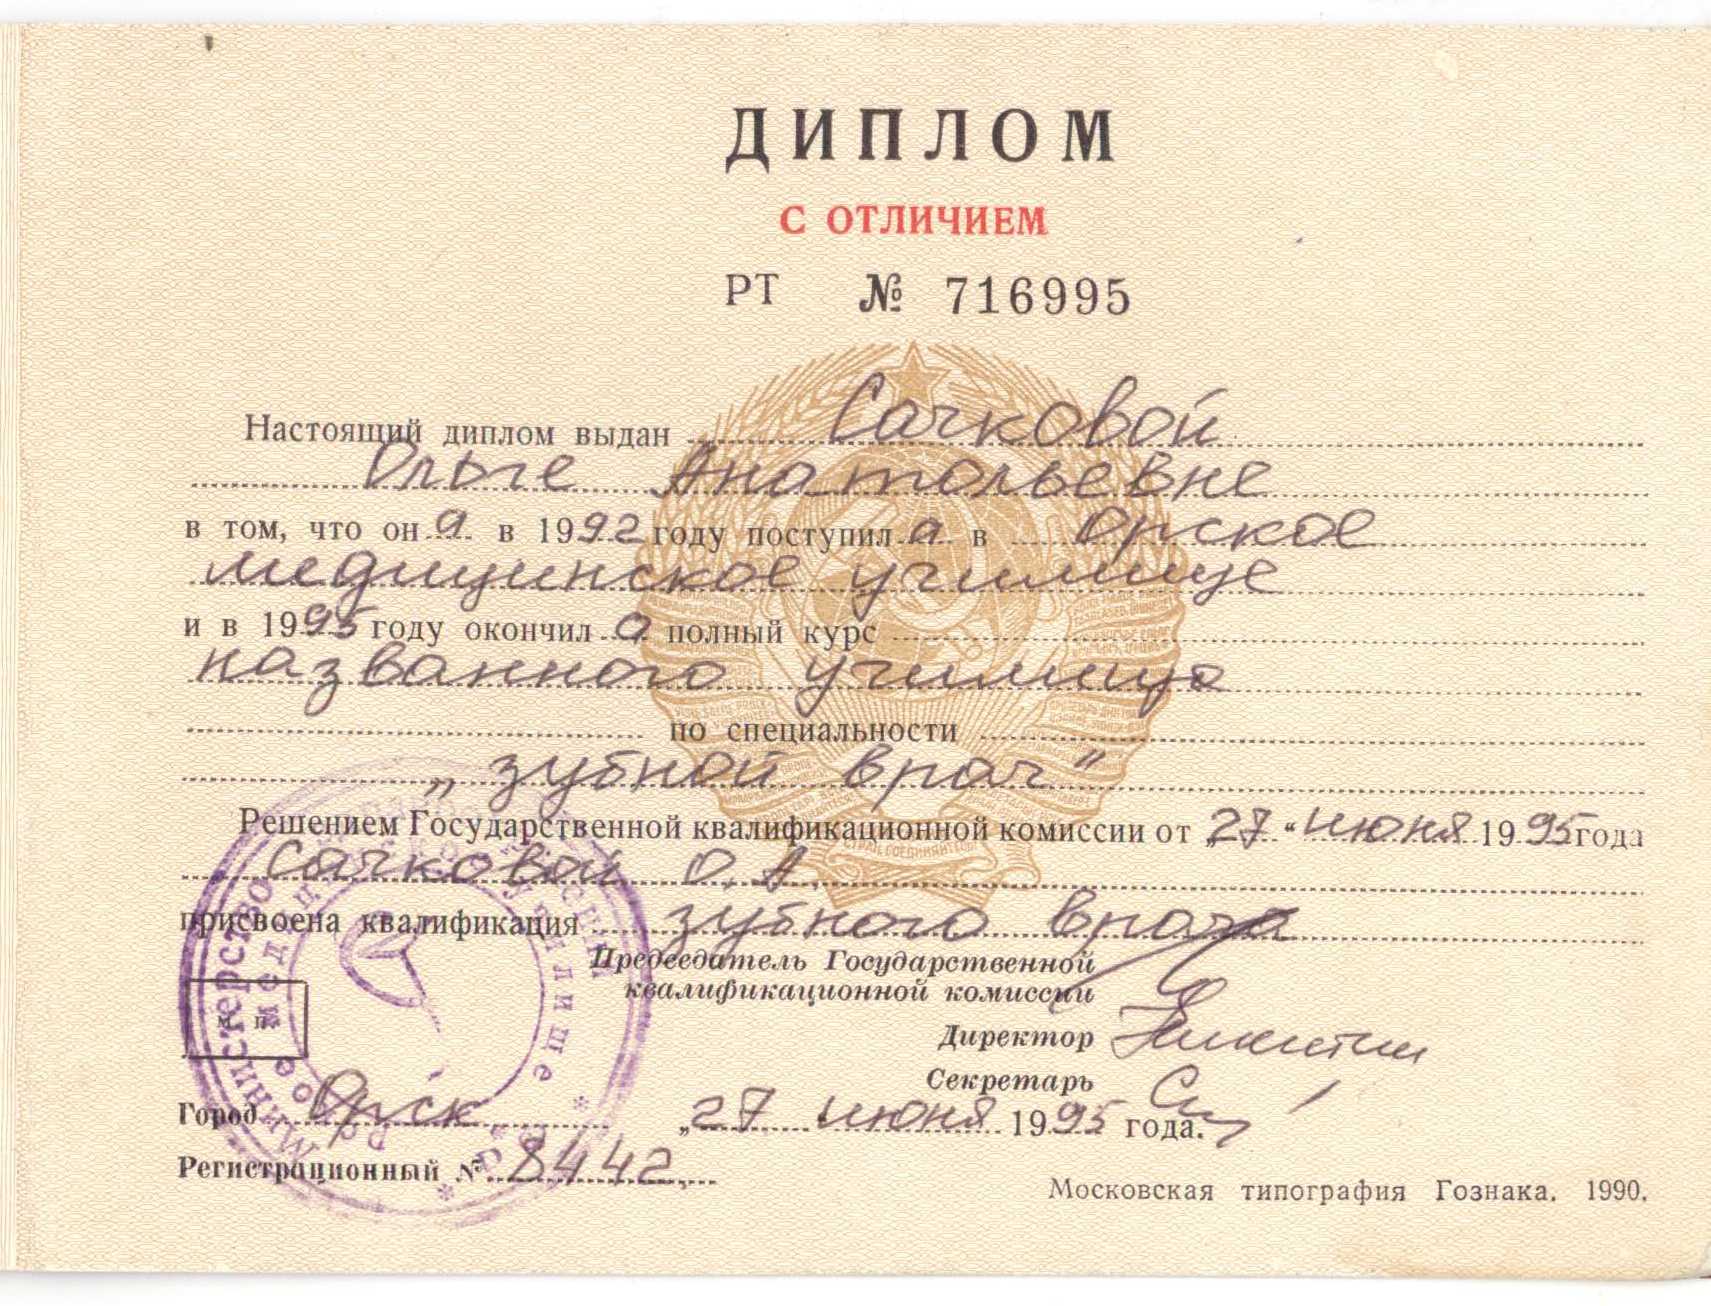 ДИПЛОМ
С ОТЛИЧИЕМ
РТ № 716995
Настоящий диплом выдан Сачковой
Ользе Анатольевне
в том, что он а в 1992 году поступил а в Орское
медицинское училище
и в 1995 году окончил а полный курс
названного училища
по специальности
„зубной врач"
Решением Государственной квалификационной комиссии от „27" июня 1995 года
Сачковой О.А.
присвоена квалификация зубного врача
Председатель Государственной
квалификационной комиссии
Директор
Секретарь
м п
Город Орск „27 июня 1995 года.
Регистрационный № 8442
Московская типография Гознака. 1990.
Министерство
медицинское училище